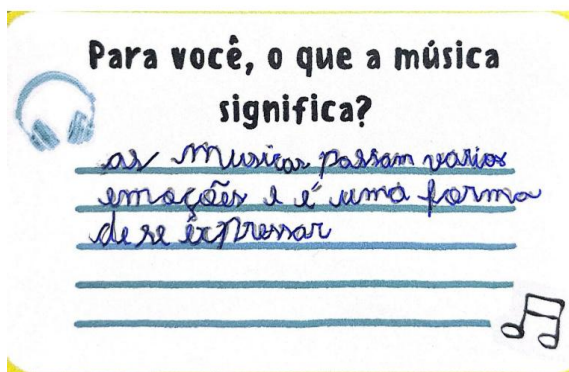 Para você, o que a música
significa?
as musicas passam varios
emoções e é uma forma
de se expressar